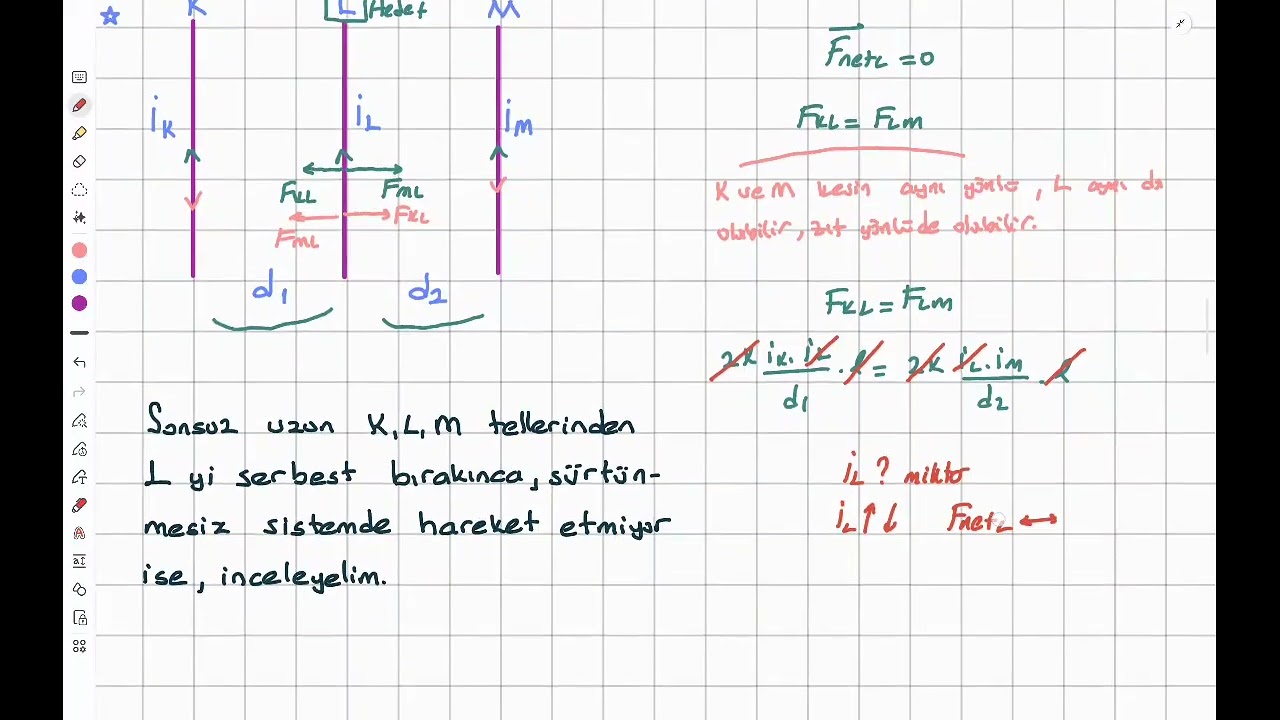 K L Hedef M
iK iL iM
FKL FML
FKL
FML
d1 d2
Sonsuz uzun K, L, M tellerinden
L yi serbest bırakınca, sürtün-
mesiz sistemde hareket etmiyor
ise, inceleyelim.
FnetL = 0
FKL = FLM
K ve M kesin aynı yönlü, L aynı da
olabilir, zıt yönlüde olabilir.
FKL = FLM
2K iK. iL / d1 . l = 2K iL. iM / d2 . l
iL ? miktar
iL ↑ ↓ FnetL ↔